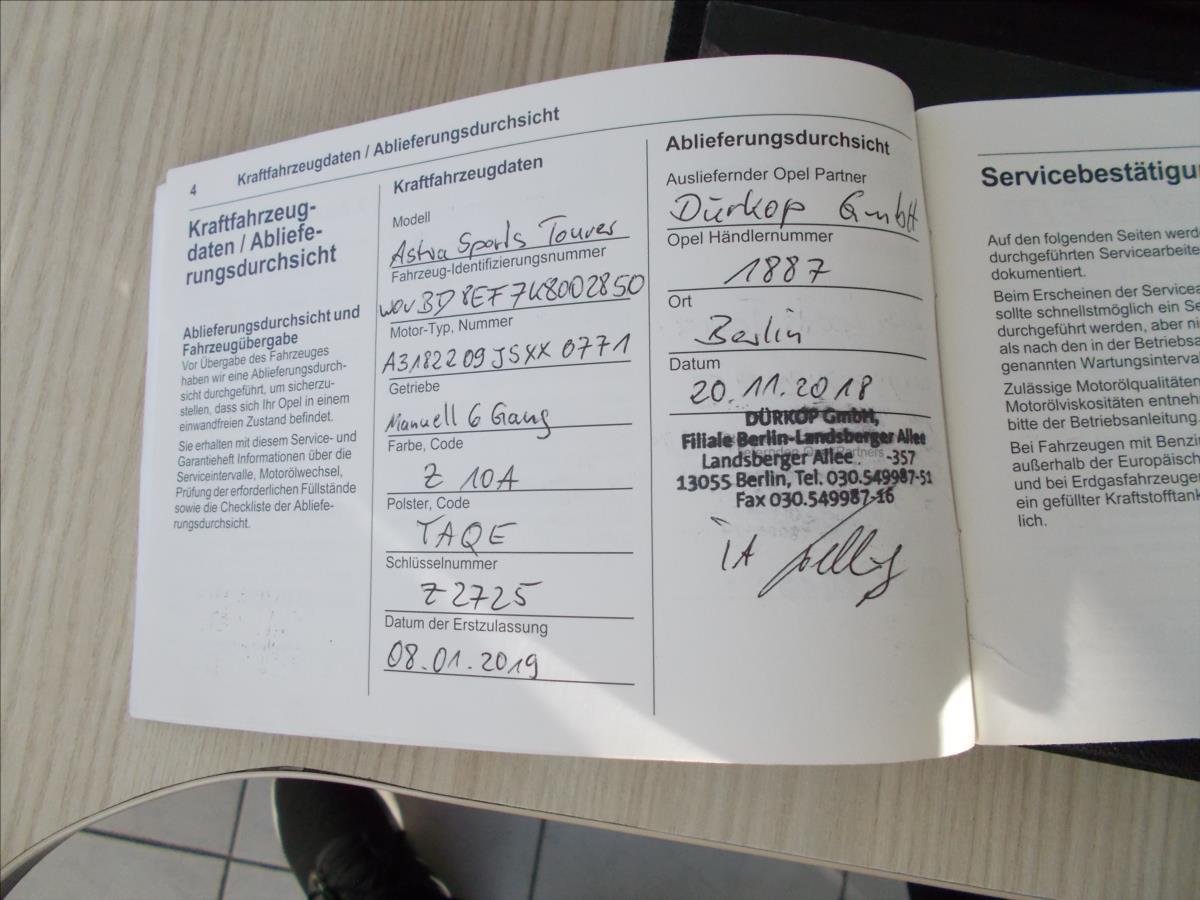 4
Kraftfahrzeugdaten / Ablieferungsdurchsicht
Kraftfahrzeug-
daten / Abliefe-
rungsdurchsicht
Ablieferungsdurchsicht und
Fahrzeugübergabe
Vor Übergabe des Fahrzeuges
haben wir eine Ablieferungsdurch-
sicht durchgeführt, um sicherzu-
stellen, dass sich Ihr Opel in einem
einwandfreien Zustand befindet.
Sie erhalten mit diesem Service- und
Garantieheft Informationen über die
Serviceintervalle, Motorölwechsel,
Prüfung der erforderlichen Füllstände
sowie die Checkliste der Abliefe-
rungsdurchsicht.
Kraftfahrzeugdaten
Modell
Astra Sports Tourer
Fahrzeug-Identifizierungsnummer
W0VBD8EF7K8002850
Motor-Typ, Nummer
A3182209JSXX0771
Getriebe
Manuell 6 Gang
Farbe, Code
Z 10A
Polster, Code
TAQE
Schlüsselnummer
Z2725
Datum der Erstzulassung
08.01.2019
Ablieferungsdurchsicht
Ausliefernder Opel Partner
Dürkop GmbH
Opel Händlernummer
1887
Ort
Berlin
Datum
20.11.2018
DÜRKOP GmbH,
Filiale Berlin-Landsberger Allee
Landsberger Allee -357
13055 Berlin, Tel. 030.549987-51
Fax 030.549987-16
iA
Servicebestätigu
Auf den folgenden Seiten werd
durchgeführten Servicearbeite
dokumentiert.
Beim Erscheinen der Servicea
sollte schnellstmöglich ein Se
durchgeführt werden, aber ni
als nach den in der Betriebsa
genannten Wartungsinterva
Zulässige Motorölqualitäten
Motorölviskositäten entneh
bitte der Betriebsanleitung.
Bei Fahrzeugen mit Benzin
außerhalb der Europäisch
und bei Erdgasfahrzeugen
ein gefüllter Kraftstofftank
lich.